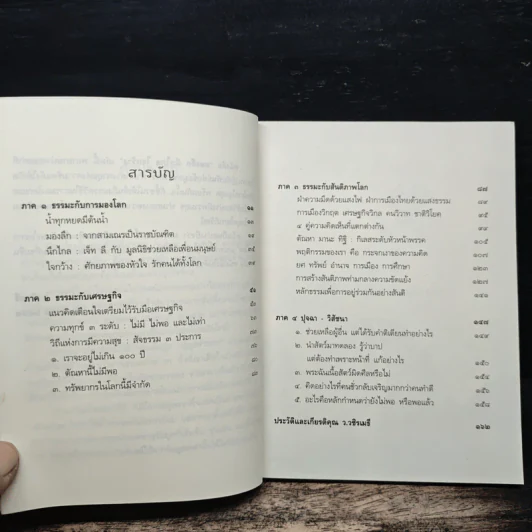 สารบัญ
ภาค ๑ ธรรมะกับการมองโลก
น้ำทุกหยดมีต้นน้ำ
มองลึก : จากสามเณรเป็นราชบัณฑิต
นึกไกล : เจ็ท ลี กับ มูลนิธิช่วยเหลือเพื่อนมนุษย์
ใจกว้าง : ศักยภาพของหัวใจ รักคนได้ทั้งโลก
ภาค ๒ ธรรมะกับเศรษฐกิจ
แนวคิดเตือนใจเตรียมไว้รับมือเศรษฐกิจ
ความทุกข์ ๓ ระดับ : ไม่มี ไม่พอ และไม่เท่า
วิถีแห่งการมีความสุข : สัจธรรม ๓ ประการ
๑. เราจะอยู่ไม่เกิน ๑๐๐ ปี
๒. ตัณหานี้ไม่มีพอ
๓. ทรัพยากรในโลกนี้มีจำกัด
ภาค ๓ ธรรมะกับสันติภาพโลก ๘๗
ฝ่าความมืดด้วยแสงไฟ ฝ่าการเมืองไทยด้วยแสงธรรม ๘๙
การเมืองวิกฤต เศรษฐกิจวิกล คนวิวาท ชาติวิโยค ๙๕
๔ คู่ความคิดเห็นที่แตกต่างกัน ๙๙
ตัณหา มานะ ทิฐิ : กิเลสระดับหัวหน้าพรรค ๑๐๕
พฤติกรรมของเรา คือ กระจกเงาของความคิด ๑๐๗
ยศ ทรัพย์ อำนาจ การเมือง การศึกษา ๑๒๓
การสร้างสันติภาพท่ามกลางความขัดแย้ง
หลักธรรมเพื่อการอยู่ร่วมกันอย่างสันติ ๑๔๑
ภาค ๔ ปุจฉา - วิสัชนา ๑๔๗
๑. ช่วยเหลือผู้อื่น แต่ได้รับคำติเตียนทำอย่างไร ๑๔๙
๒. นำสัตว์มาทดลอง รู้ว่าบาป
แต่ต้องทำเพราะหน้าที่ แก้อย่างไร ๑๕๐
๓. พระฉันเนื้อสัตว์ผิดศีลหรือไม่ ๑๕๔
๔. คิดอย่างไรที่คนชั่วกลับเจริญมากกว่าคนทำดี ๑๕๖
๕. อะไรคือหลักกำหนดว่ายังไม่พอ หรือพอแล้ว ๑๕๘
ประวัติและเกียรติคุณ ว.วชิรเมธี ๑๖๒